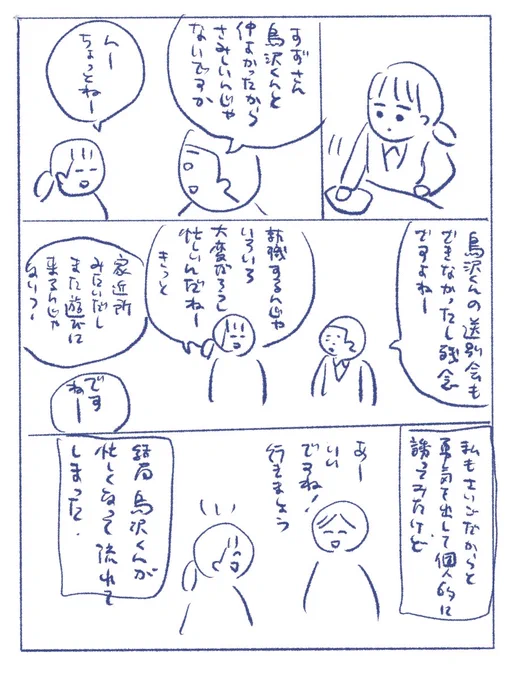 すずさん
鳥沢くんと
仲よかったから
さみしいんじゃ
ないですか
んー
ちょっとねー
鳥沢くんの送別会も
できなかったし残念
ですよねー
就職するんじゃ
いろいろ
大変だろうし
忙しいんだねー
きっと
家近所
みたいだし
また遊びに
来るんじゃ
ない?
です
ねー
私もさいごだからと
勇気を出して個人的に
誘ってみたけど
あー
いい
ですね!
行きましょう
結局鳥沢くんが
忙しくなって流れて
しまった.